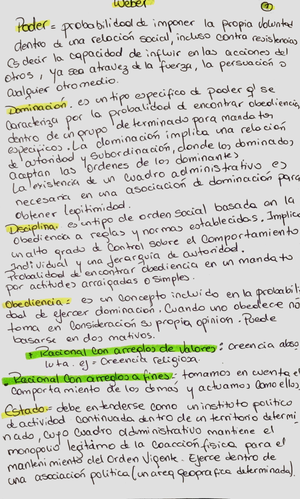 Weber
Poder = probabilidad de imponer la propia voluntad
dentro de una relación social, incluso contra resistencias
Es decir la capacidad de influir en las acciones del
otros, ya sea atravez de la fuerza, la persuasión o
cualquier otro medio.
Dominación. es un tipo especifico de poder q' se
caracteriza por la probalidad de encontrar obediencia,
dentro de un grupo determinado para mandatos
especificos. La dominación implica una relación
de autoridad y subordinación, donde los dominados,
aceptan las ordenes de los dominantes
La existencia de un cuadro administrativo es
necesaria en una asociación de dominación para
obtener legitimidad.
Disciplina. es un tipo de orden social basada en la
obediencia a reglas y normas establecidas. Implica
un alto grado de control sobre el comportamiento
individual y una jerarquía de autoridad.
Probabilidad de encontrar obediencia en un mandato
por actitudes arraigadas o simples.
Obediencia = es un concepto incluido en la probabili-
dad de ejercer dominación. Cuando uno obedece no
toma en consideración su propia opinion. Puede
basarse en dos motivos.
Racional con arreglos de valores: creencia abso
luta. ej = Creencia religiosa
Racional con arreglos a fines: tomamos en cuenta el
comportamiento de los demas y actuamos como ellos,
Estado = debe entenderse como un instituto politico
de actividad continuada dentro de un territorio determi
nado, cuyo cuadro administrativo mantiene el
monopolio legítimo de la coacción fisica para el
mantenimiento del Orden Vigente. Ejerce dentro de
una asociación politica (un area geografica determinada).